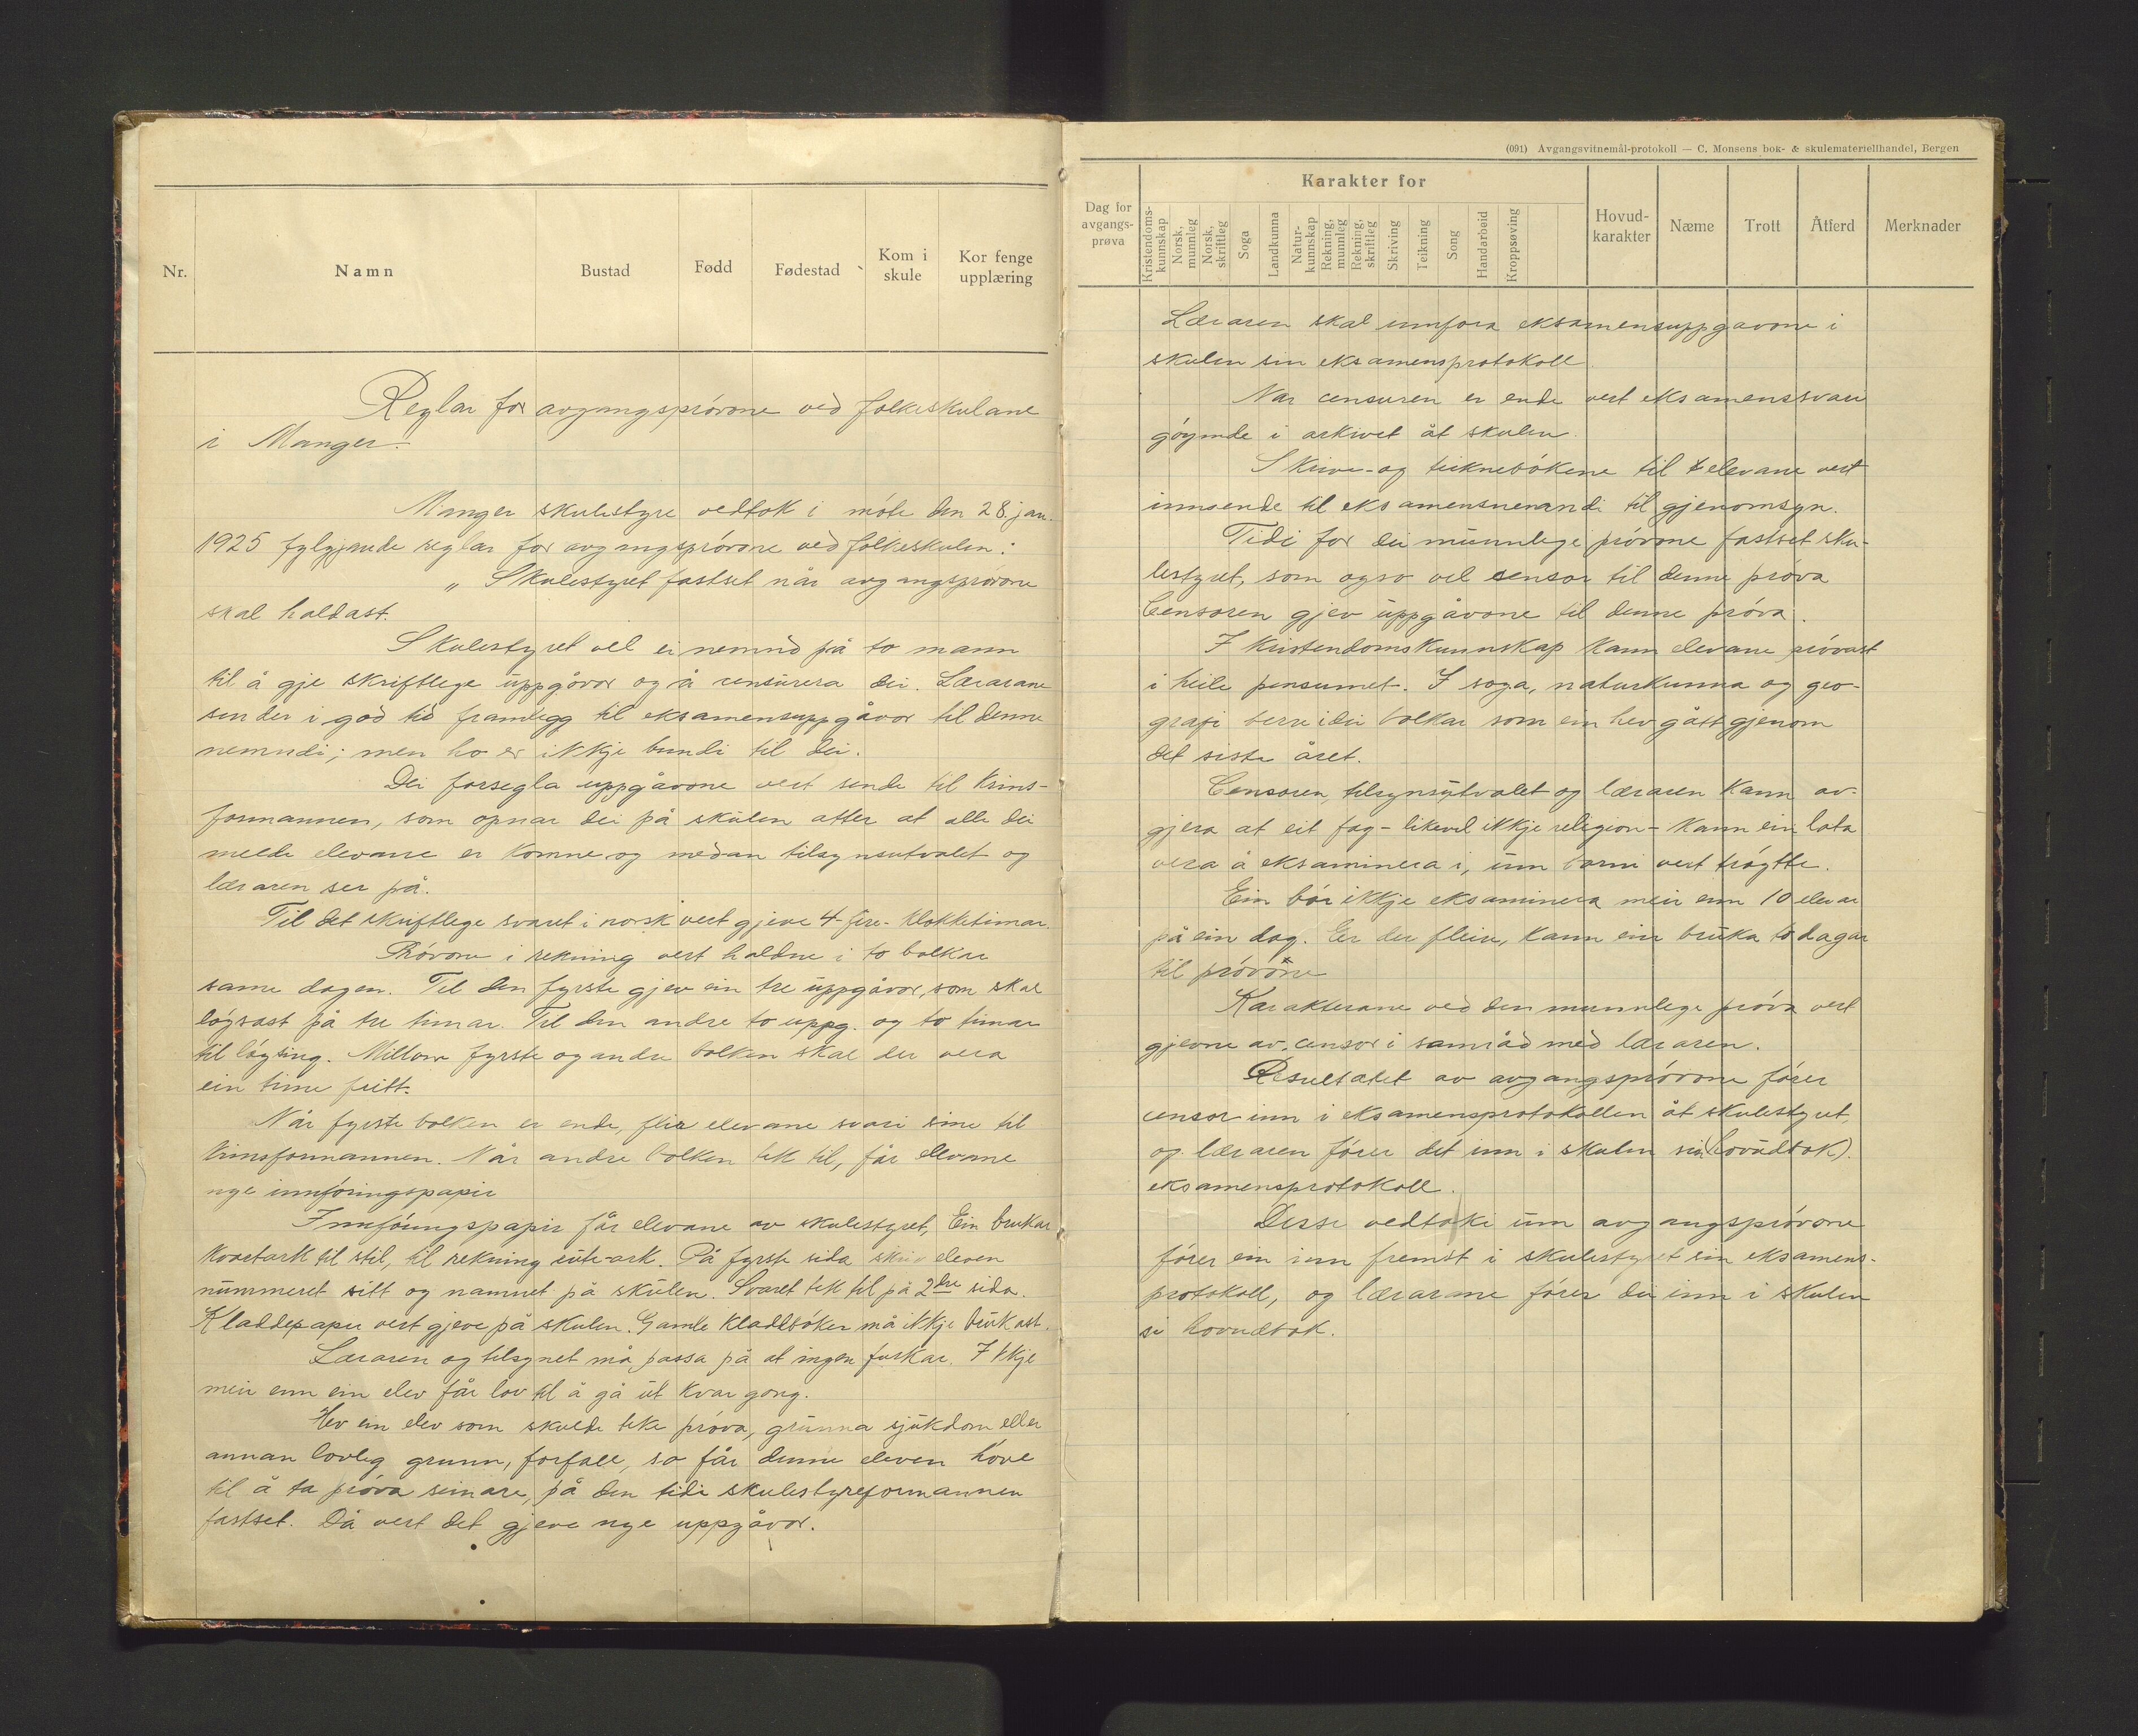 Nr.
Namn
Bustad
Fødd
Fødestad
Kom i
skule
Kor fenge
upplæring
Reglar for avgangspróvone ved folkeskulane
i Manger.
Manger skulestyre vedtok i móte den 28. jan.
1925 fylgjande reglar for avgangsprovone ved folkeskulen:
„ Skulestyret fastset når avgangsprovone
skal haldast.
Skulestyret vel ei nemnd på to mann
til å gje skriftlege uppgåvor og å censurera dei. Lærarane
sender i god tid framlegg til eksamensuppgåvor til denne
nemndi; men ho er ikkje bundi til dei.
Dei forsegla uppgåvone vert sende til Krins-
formannen, som opnar dei på skulen atter at alle dei
melde elevane er komne og medan tilsynsutvalet og
læraren ser på.
Til det skriftlege svaret i norsk vert gjeve 4-fire-klokketimar.
Próvone i rekning vert haldne i to bolkar
same dagen. Til den fyrste gjev ein tre uppgåvor, som skal
lóysast på tre timar. Til den andre to uppg. og to timar
til lóysing. Millom fyrste og andre bolken skal der vera
ein time fritt.
Når fyrste bolken er ende, flir elevane svari sine til
Krinsformannen. Når andre bolken tek til, får elevane
nye innfóringspapir
Innfóringspapir får elevane av skulestyret, Ein brukar
kvartark til stil, til rekning rute-ark. På fyrste sida skriv eleven
nummeret sitt og namnet på skulen. Svaret tek til på 2dre sida.
Kladdepapir vert gjeve på skulen. Gamle kladdbóker må ikkje brukast.
Læraren og tilsynet må passa på at ingen fuskar. Ikkje
meir enn ein elev får lov til å gå ut kvar gong.
Hev ein elev som skulde teke próva, grunna sjukdom eller
annan lovleg grunn, forfall, so får denne eleven hóve
til å ta próva seinare, på den tidi skulestyreformannen
fastset. Då vert det gjeve nye uppgåvor.
(091) Avgangsvitnemål-protokoll — C. Monsens bok- & skulemateriellhandel, Bergen
Dag for
avgangs-
prøva
Karakter for
Kristendoms-
kunnskap
Norsk,
munnleg
Norsk,
skriftleg
Soga
Landkunna
Natur-
kunnskap
Rekning,
munnleg
Rekning,
skriftleg
Skriving
Teikning
Song
Handarbeid
Kroppsøving
Hovud-
karakter
Næme
Trott
Åtferd
Merknader
Læraren skal innfora eksamensuppgavone i
skulen sin eksamensprotokoll.
Nar censuren er ende vert eksamenssvari
góymde i arkivet åt skulen.
Skrive- og teiknebókene til elevane vert
innsende til eksamensnemndi til gjenomsyn.
Tidi for dei munnlege próvone fastset sku-
lestyret, som ogso vel censor til denne próva
Censoren gjev uppgåvone til denne próva.
I Kristendomskunnskap kann elevane próvast
i heile pensumet. I soga, naturkunna og geo-
grafi berre i dei bolkar som ein hev gått gjenom
det siste året.
Censoren, tilsynsutvalet og læraren kann av-
gjera at eit fag - likevel ikkje religion - kann ein lata
vera å eksaminera i, um borni vert trøytte.
Ein bór ikkje eksaminera meir enn 10 elevar
på ein dag. Er der fleire, kann ein bruka to dagar
til próvone
Karakterane ved den munnlege próva vert
gjevne av censor i samråd med læraren.
Resultatet av avgangspróvone fórer
censor inn i eksamensprotokollen åt skulestyret,
og læraren fórer det inn i skulen sin (hovudbok).
eksamensprotokoll.
Desse vedtaki um avgangspróvone
fórer ein inn fremst i skulestyret sin eksamens-
protokoll, og lærarane fórer dei inn i skulen
si hovudbok.